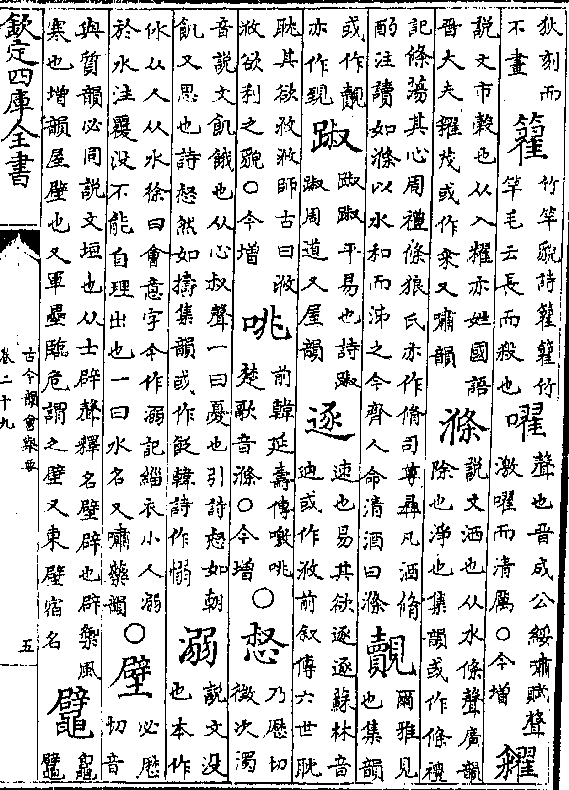 狄刻而
不畫
籊
竹竿貌詩籊籊竹
竿毛云長而殺也
嚁
聲也晉成公綏嘯賦聲
激嚁而清厲○今增
糴
說文市穀也从入糴亦姓國語
晉大夫糴茂或作籴又嘯韻
滌
說文洒也从水條聲廣韻
除也淨也集韻或作條禮
記條蕩其心周禮條狼氏亦作脩司尊彞凡酒脩
酌注讀如滌以水和而泲之今齊人命清酒曰滌
覿
爾雅見
也集韻
或作
亦作
踧
踧踧平易也詩踧
踧周道又屋韻
逐
速也易其欲逐逐蘇林音
迪或作浟前叙傳六世耽
耽其欲浟浟師古曰浟
浟欲利之貌○今增
咷
前韓延壽傳噭咷
楚歌音滌○今增
○惄
乃歴切
徵次濁
音說文飢餓也从心叔聲一曰憂也引詩惄如朝
飢又思也詩惄然如擣集韻或作韓詩作愵
溺
說文没
也本作
㲻从人从水徐曰會意字今作溺記緇衣小人溺
於水注覆没不能自理出也一曰水名又嘯藥韻
○壁
必歴
切音
與質韻必同說文垣也从土辟聲釋名壁辟也辟禦風
寒也增韻屋壁也又軍壘臨危謂之壁又東壁宿名
鼊
鼊
欽定四庫全書
古今韻會舉要
卷二十九
五